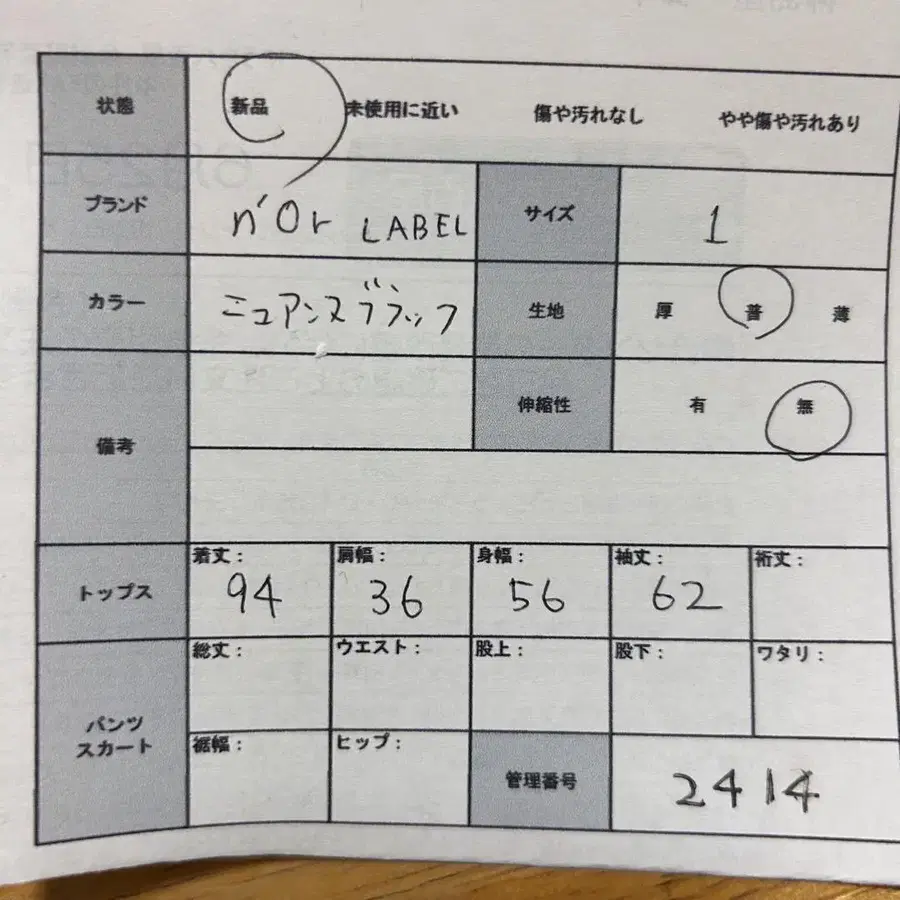 状態 新品 未使用に近い 傷や汚れなし やや傷や汚れあり
ブランド n'Or LABEL サイズ 1
カラー ニュアンスブラック 生地 厚 普 薄
備考 伸縮性 有 無
トップス 着丈: 94 肩幅: 36 身幅: 56 袖丈: 62 裄丈:
パンツ
スカート
総丈: ウエスト: 股上: 股下: ワタリ:
裾幅: ヒップ: 管理番号 2414